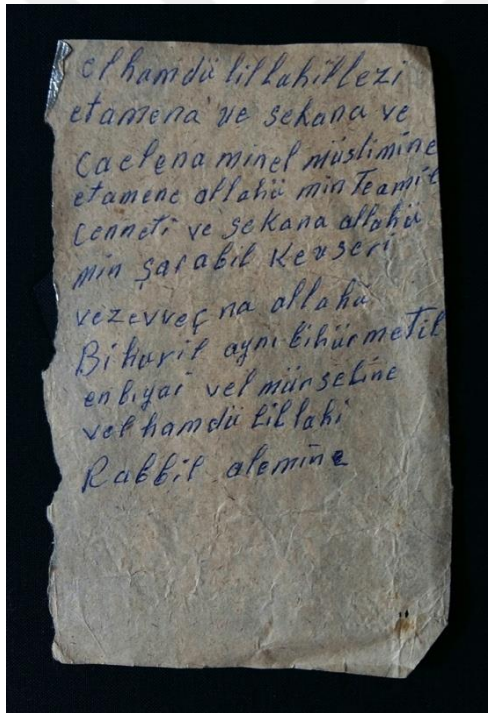 elhamdü lillahillezi
etamena ve sekana ve
caelena minel müslimine
etamene allahü min Teamil
cenneti ve sekana allahü
min şarabil kevseri
vezevveç na allahü
Bihuril ayni bihürmetil
enbiyai vel mürseline
vel hamdü lillahi
Rabbil alemine